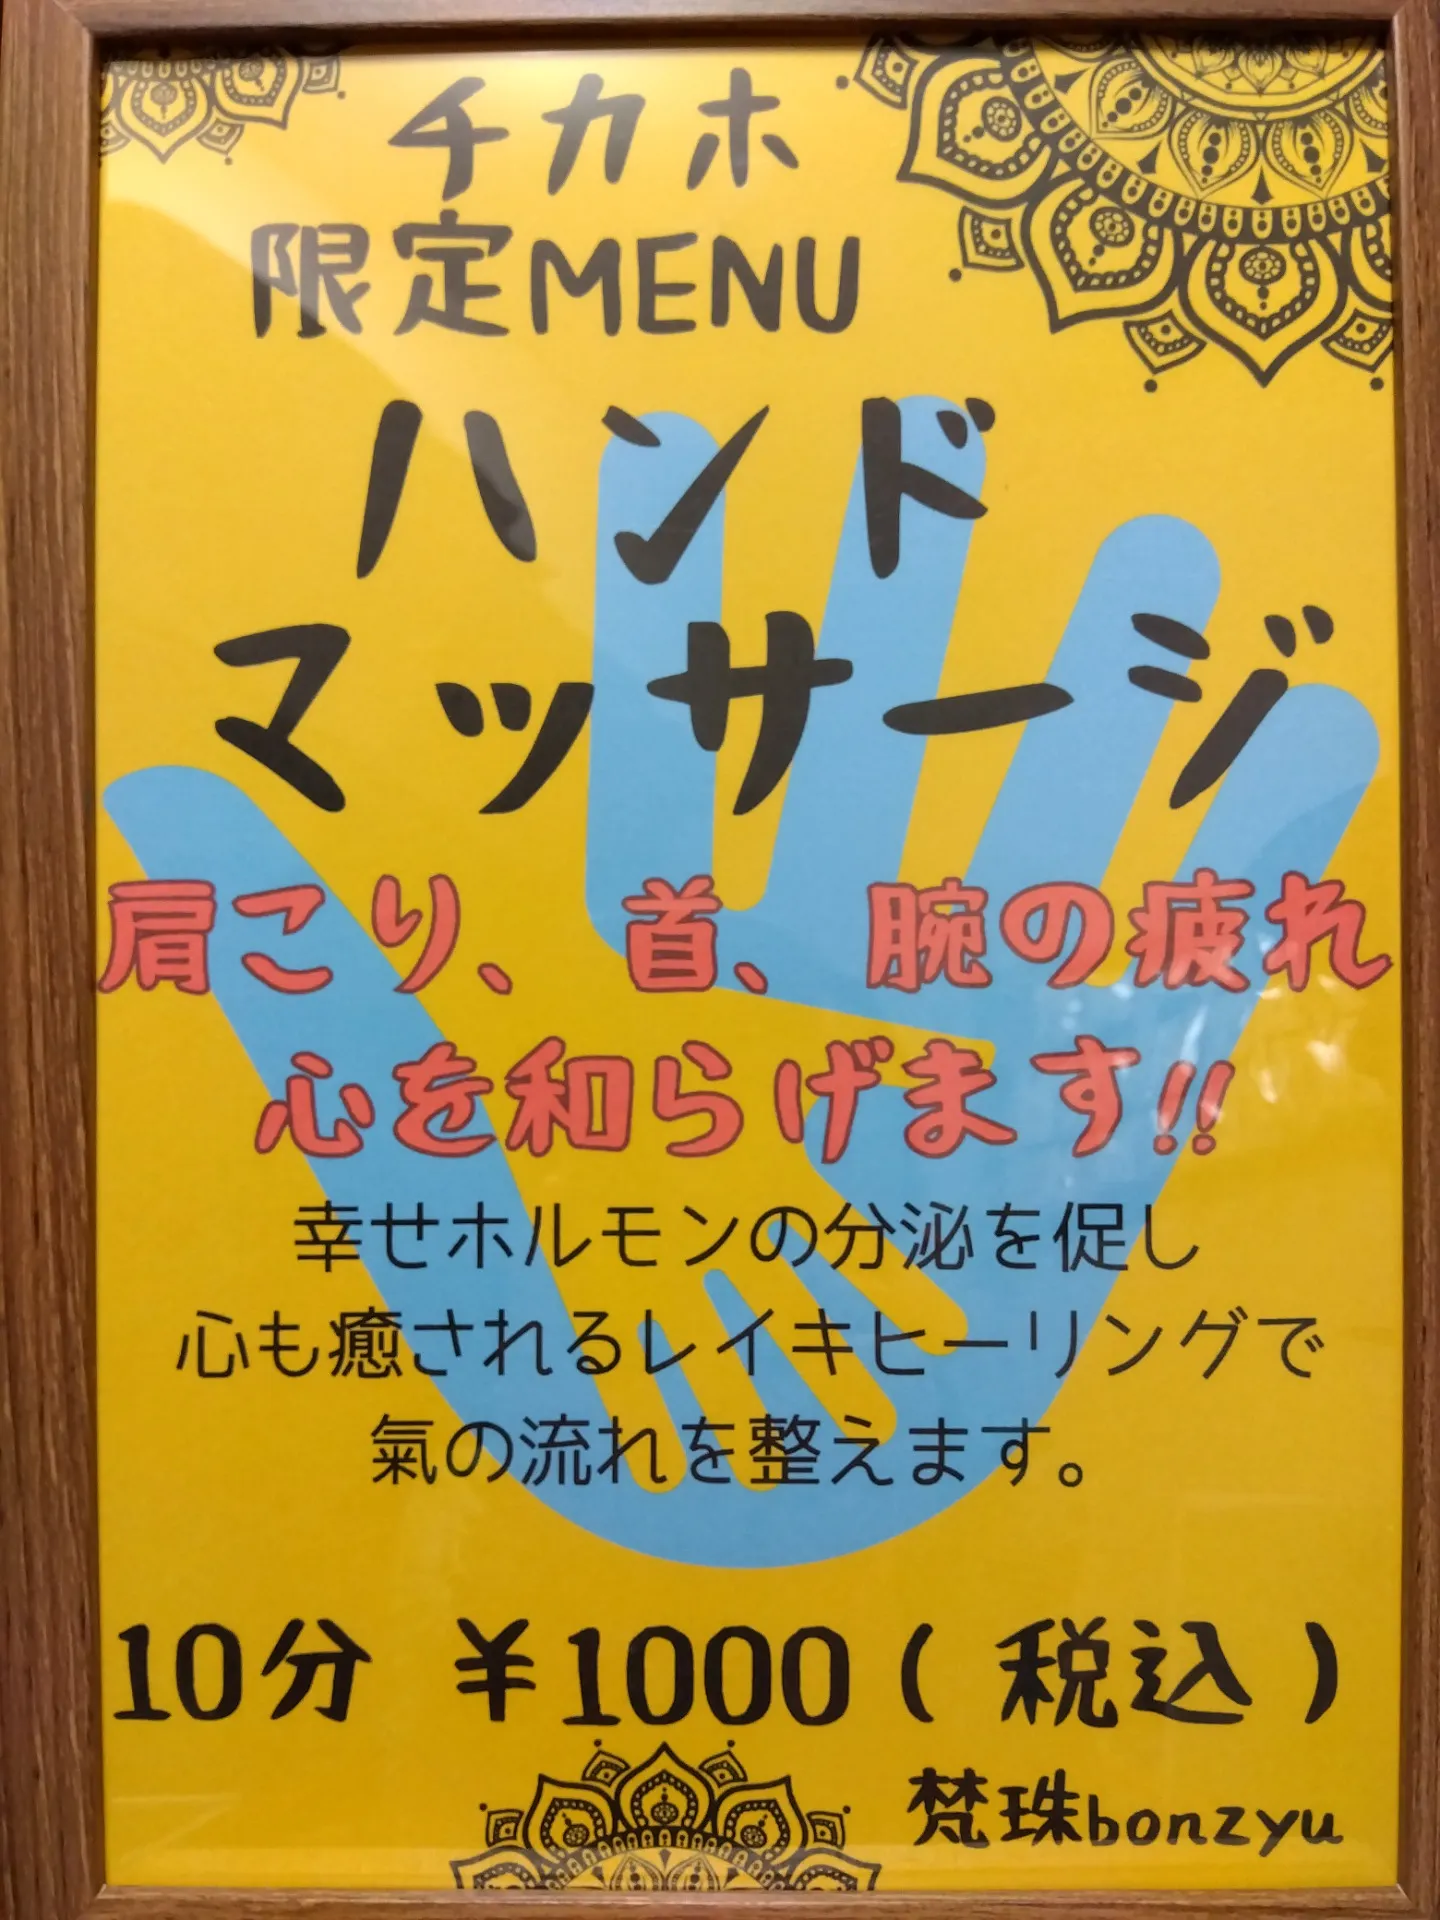 チカホ
限定MENU
ハンド
マッサージ
肩こり、首、腕の疲れ
心を和らげます!!
幸せホルモンの分泌を促し
心も癒されるレイキヒーリングで
氣の流れを整えます。
10分 ¥1000(税込)
梵珠bonzyu